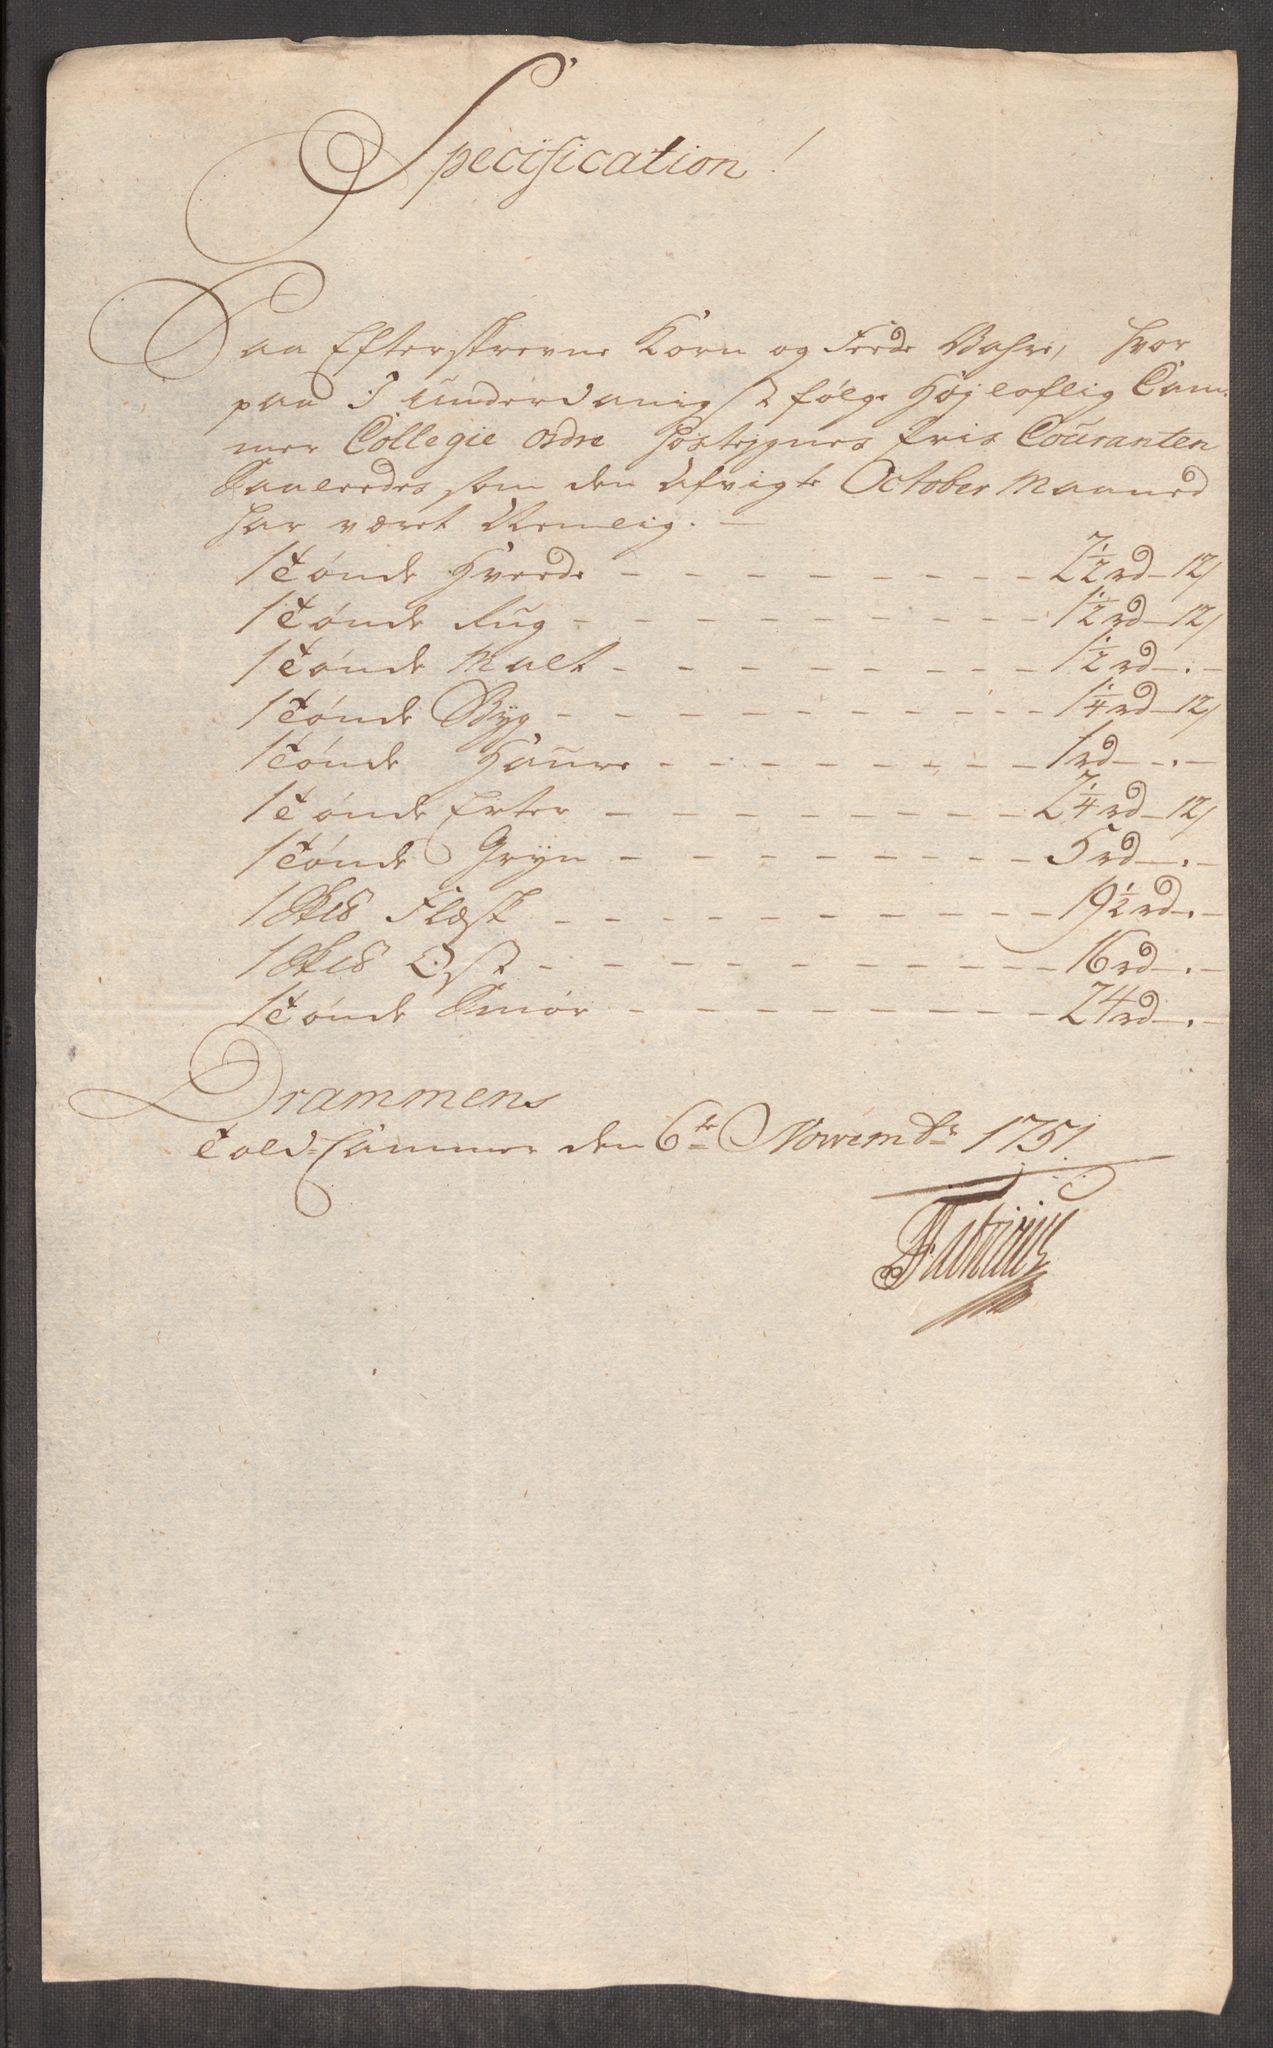 Specification!
Paa Efterskrevne Korn og Feede Vahre, hvor
paa I underdanigst følge Højloflig Cam-
mer Collegie Ordre hostegnes Pris Couranten
Saaleedes som den Afvigte October Maaned
har været Nemlig. —
1 Tønde Hvede - - - - - - - - 2½ rd - 12 /
1 Tønde Rug - - - - - - - - 1½ rd - 12 /
1 Tønde Malt - - - - - - - - 1½ rd - . -
1 Tønde Byg - - - - - - - - 1¼ rd - 12 /
1 Tønde Haure - - - - - - - - 1 rd - . -
1 Tønde Erter - - - - - - - - 2¼ rd - 12 /
1 Tønde Gryn - - - - - - - - 5 rd - . -
1 Sk℔ Flæsk - - - - - - - - 19½ rd - . -
1 Sk℔ Ost - - - - - - - - 16 rd - . -
1 Tønde Smør - - - - - - - - 24 rd - . -
Drammens
Told-Cammer den 6te Novembr 1751